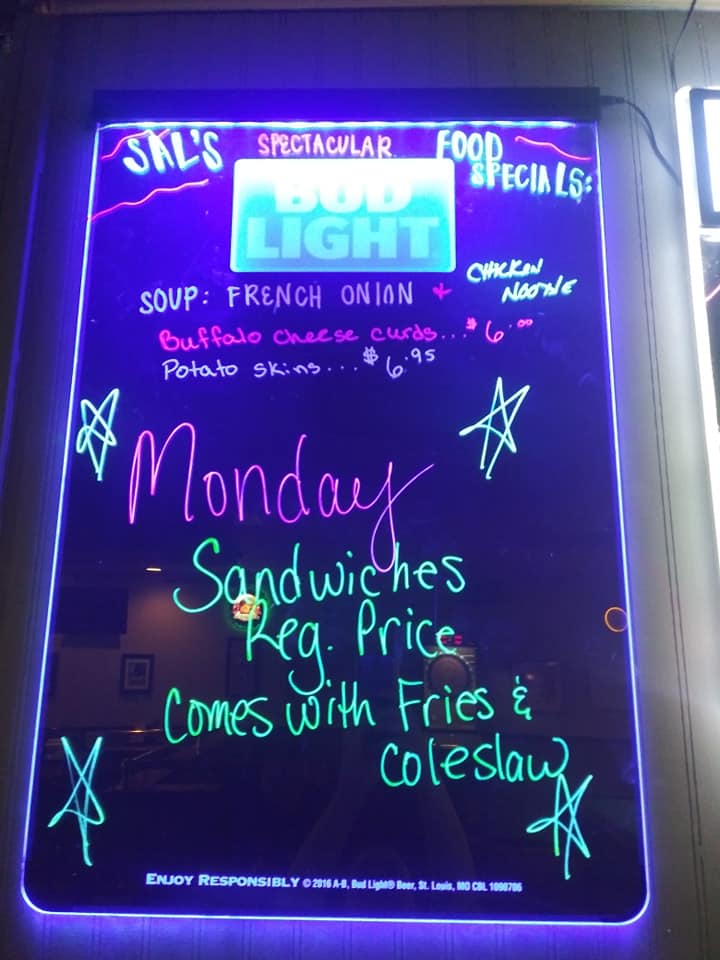 SAL'S SPECTACULAR FOOD
SPECIALS:
BUD
LIGHT
SOUP: FRENCH ONION + CHICKEN
NOODLE
Buffalo cheese curds...$6.00
Potato skins...$6.95
Monday
Sandwiches
Reg. Price
Comes with Fries &
coleslaw
ENJOY RESPONSIBLY © 2016 A-B, Bud Light® Beer, St. Louis, MO CBL 1098706